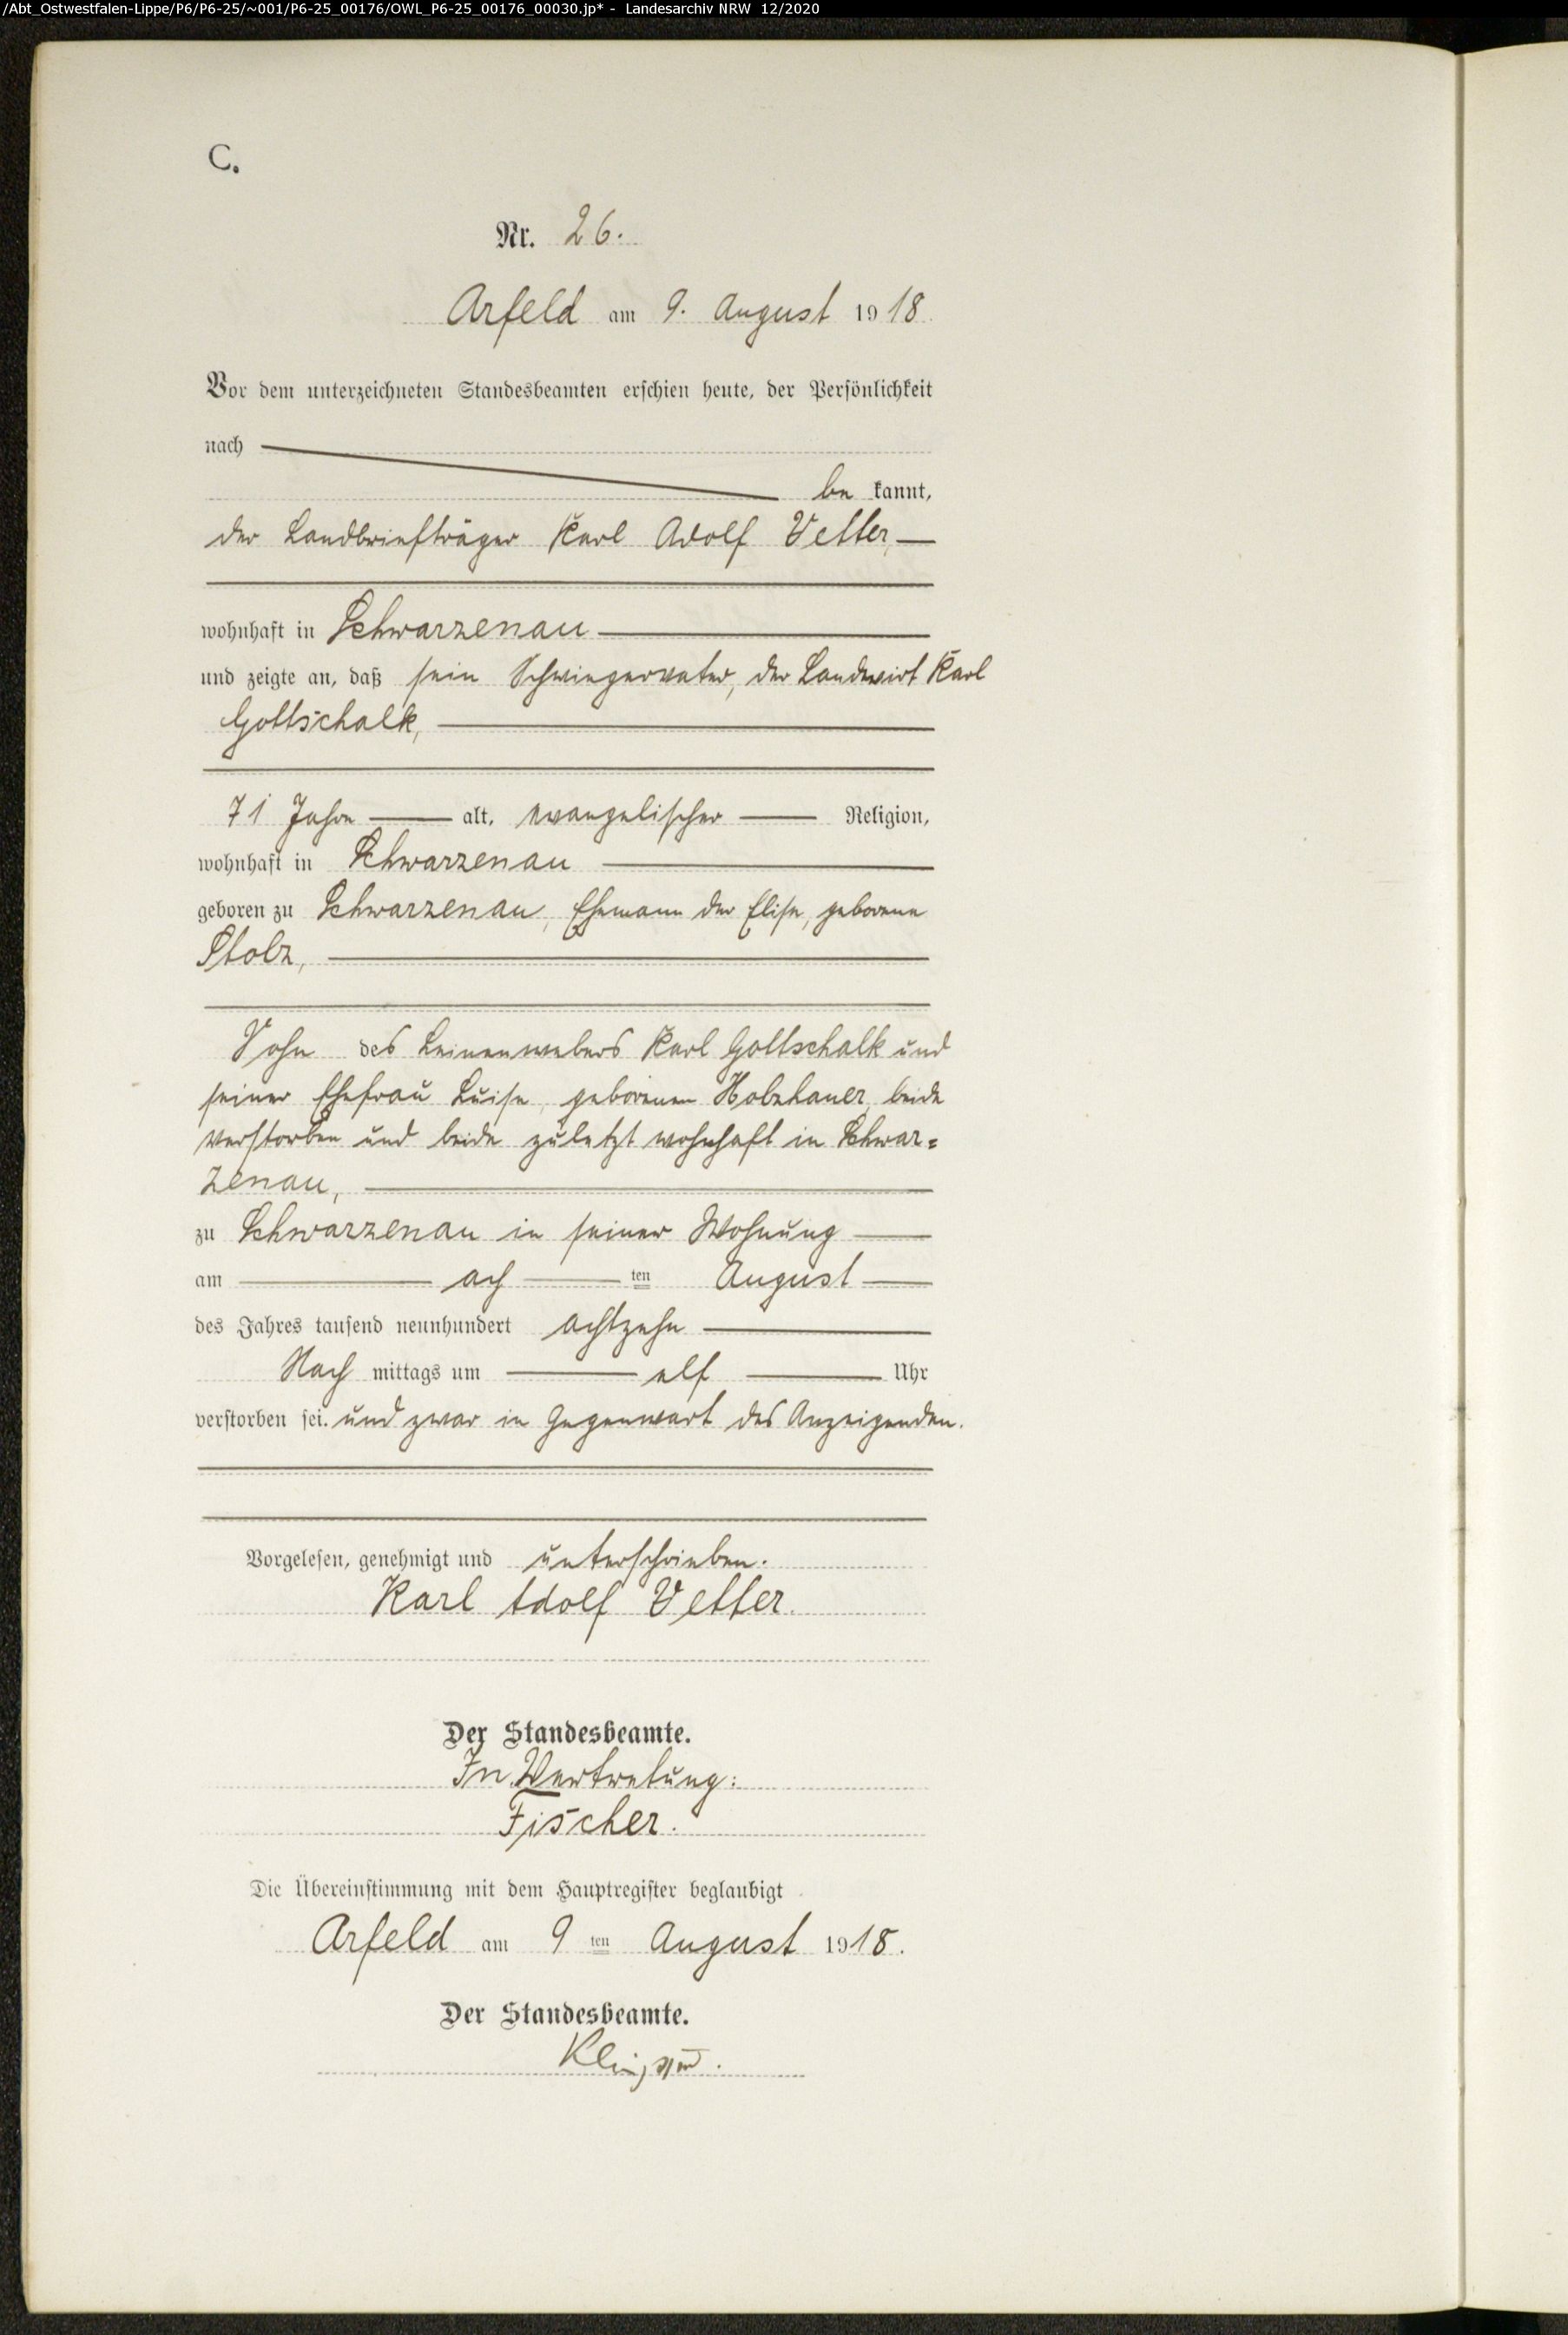 /Abt_Ostwestfalen-Lippe/P6/P6-25/~001/P6-25_00176/OWL_P6-25_00176_00030.jp* - Landesarchiv NRW 12/2020
C.
Nr. 26.
Arfeld am 9. August 1918
Vor dem unterzeichneten Standesbeamten erschien heute, der Persönlichkeit
nach
be kannt,
der Landbriefträger Karl Adolf Vetter,
wohnhaft in Schwarzenau
und zeigte an, daß sein Schwiegervater, der Landwirt Karl
Gottschalk,
71 Jahre alt, evangelischer Religion,
wohnhaft in Schwarzenau
geboren zu Schwarzenau, Ehemann der Elise, geborene
Stolz,
Sohn des Leinenwebers Karl Gottschalk und
seiner Ehefrau Luise, geborenen Holzhauer, beide
verstorben und beide zuletzt wohnhaft in Schwar=
zenau,
zu Schwarzenau in seiner Wohnung
am ach ten August
des Jahres tausend neunhundert achtzehn
Nach mittags um elf Uhr
verstorben sei. und zwar in Gegenwart des Anzeigenden.
Vorgelesen, genehmigt und unterschrieben.
Karl Adolf Vetter.
Der Standesbeamte.
In Vertretung:
Fischer.
Die Übereinstimmung mit dem Hauptregister beglaubigt
Arfeld am 9 ten August 1918.
Der Standesbeamte.